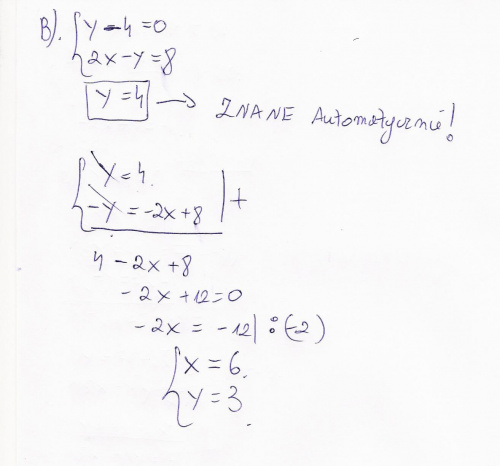 B). { y - 4 = 0
2x - y = 8
y = 4 → ZNANE Automatycznie!
{ y = 4
-y = -2x + 8 | +
4 - 2x + 8
-2x + 12 = 0
-2x = -12 | : (-2)
{ x = 6
y = 3